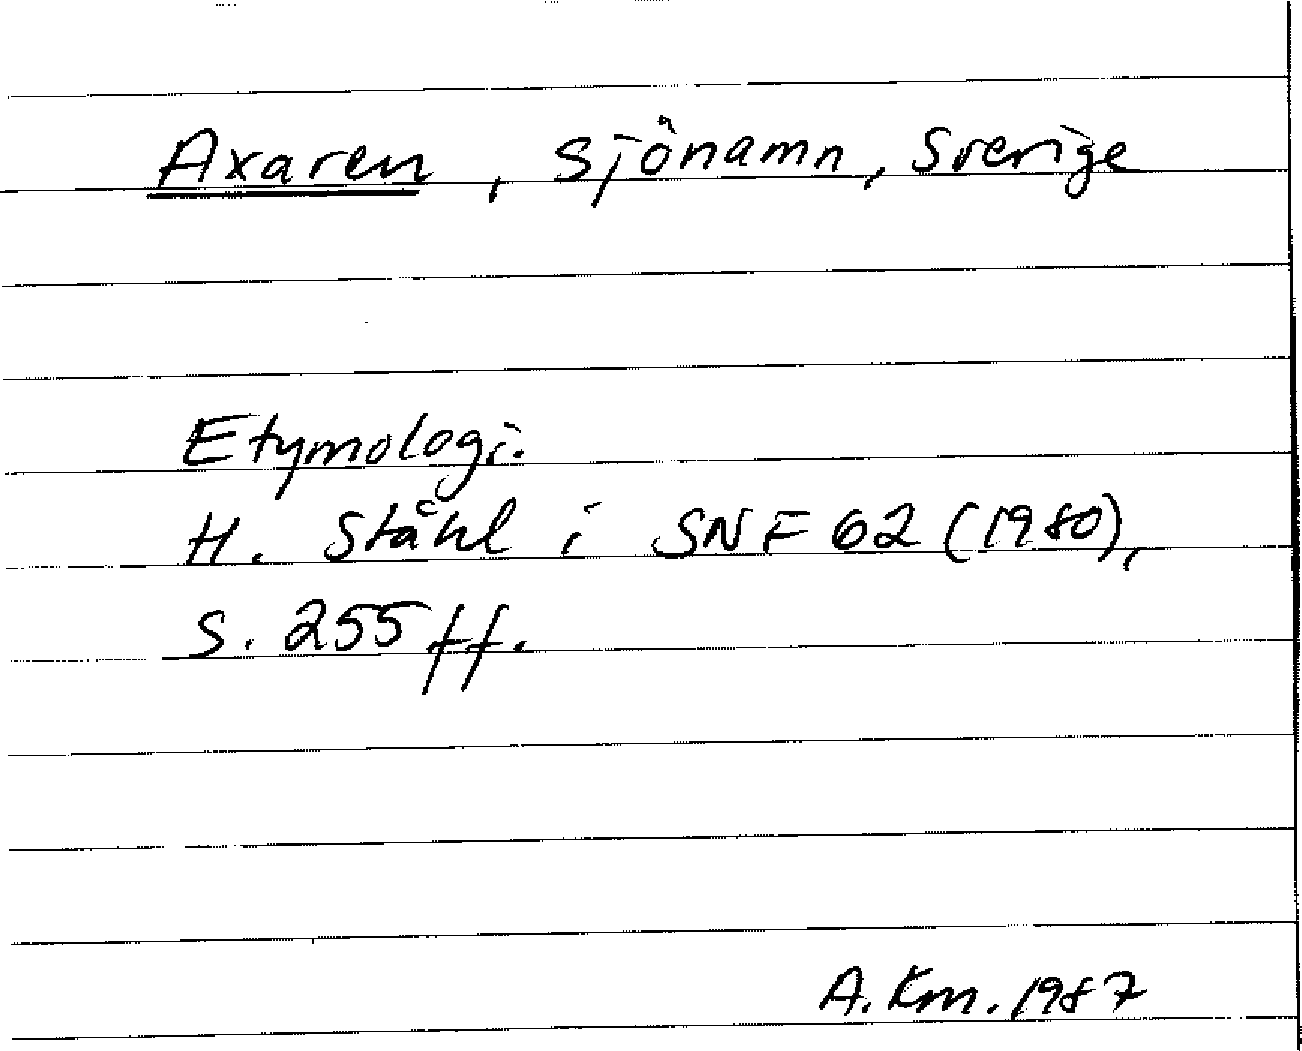 Axaren, Sjönamn, Sverige
Etymologi.
H. Ståhl i SNF 62 (1980),
s. 255 ff.
A. Km. 1987